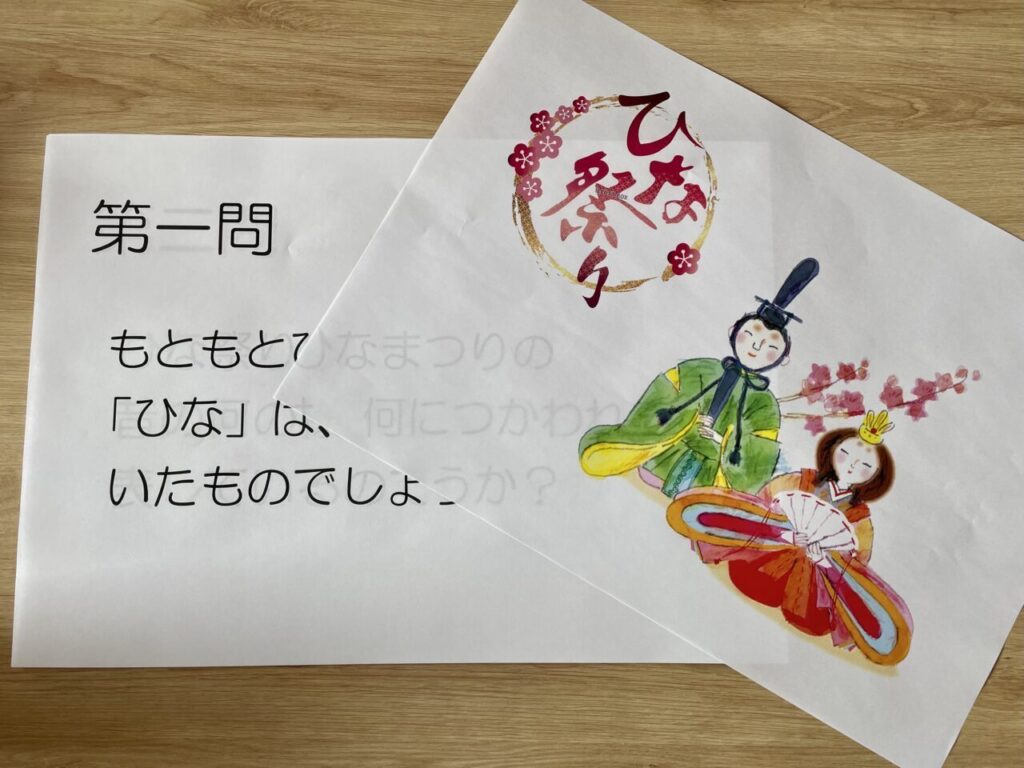 第一問
もともとひなまつりの
「ひな」は、何につかわれ
いたものでしょうか?
ひな祭り